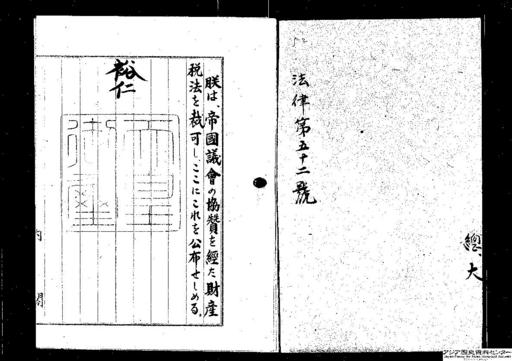 法律第五十二號
總
大
朕は、帝國議會の協贊を經た財産
税法を裁可し、ここにこれを公布せしめる。
裕仁
内閣
アジア歴史資料センター